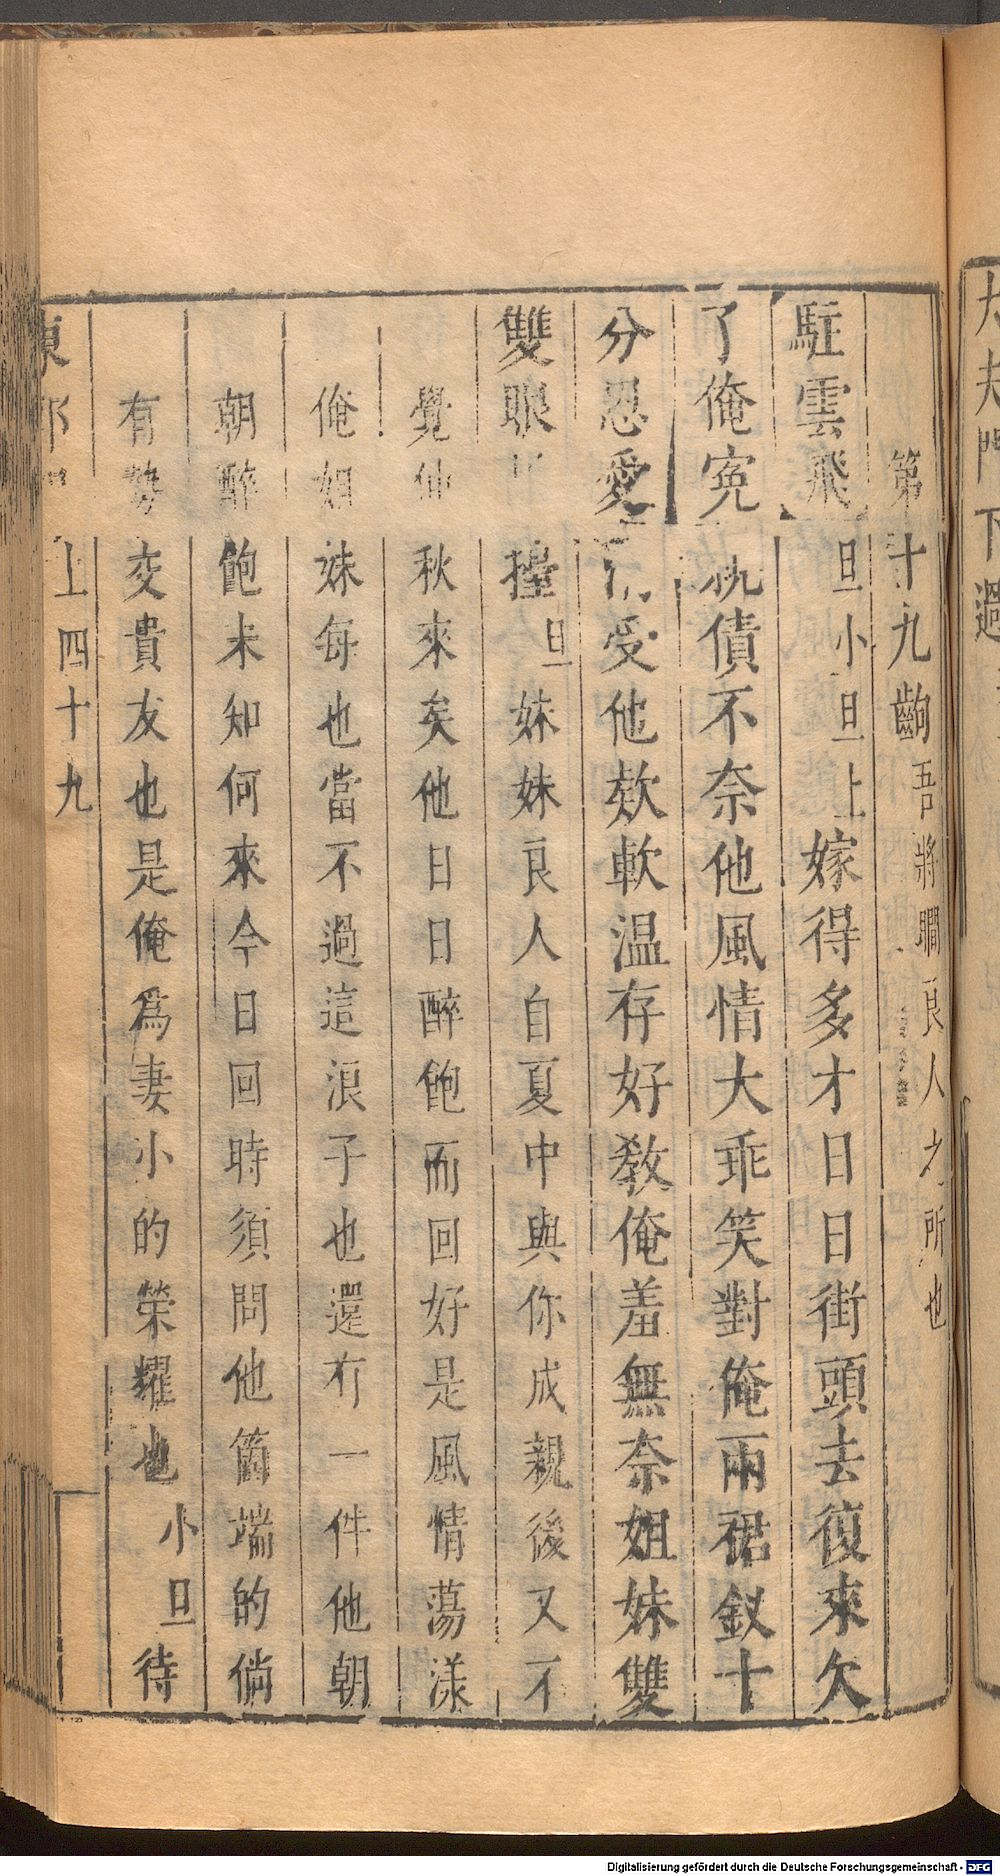 第十九齣 吾將瞷良人之所也
駐雲飛 旦小旦上 嫁得多才日日街頭去復來欠
了俺寃 債不奈他風情大乖笑對俺兩裙釵十
分恩愛 受他欸軟温存好教俺羞無奈姐妹雙
雙眼 擡 旦 妹妹良人自夏中與你成親後又不
覺仲秋來矣他日日醉飽而回好是風情蕩漾
俺姐妹每也當不過這浪子也還有一件他朝
朝醉飽未知何來今日回時須問他箇端的倘
有勢交貴友也是俺爲妻小的榮耀也 小旦 待
東郭 上 四十九
大夫門下過
Digitalisierung gefördert durch die Deutsche Forschungsgemeinschaft - DFG